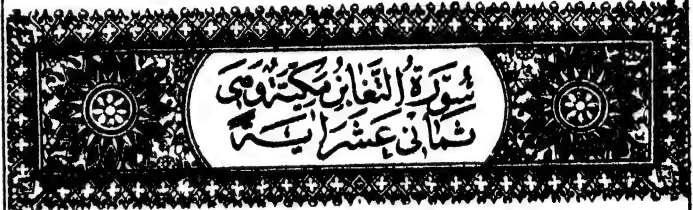 سُوْرَةُ التَّغَابُنِ مَكِّيَّةٌ وَهِيَ
ثَمَانِيَ عَشَرَ اٰيَةً